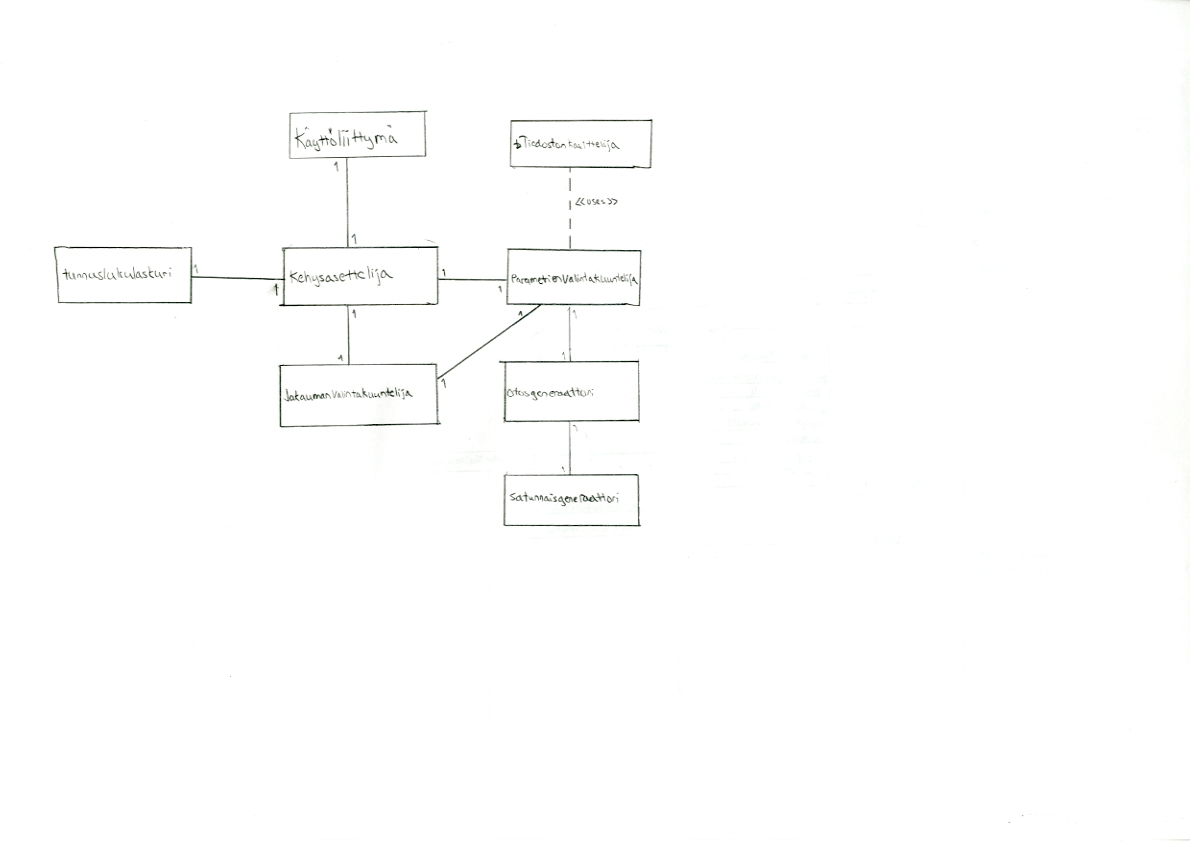 Käyttöliittymä
Tiedostonkäsittelijä
1
<<uses>>
1
tunnuslukulaskuri
1
1
Kehysasettelija
1
1
ParametrienValintakuuntelija
1
1
1
1
1
JakaumanValintakuuntelija
1
Otosgeneraattori
1
1
Satunnaisgeneraattori